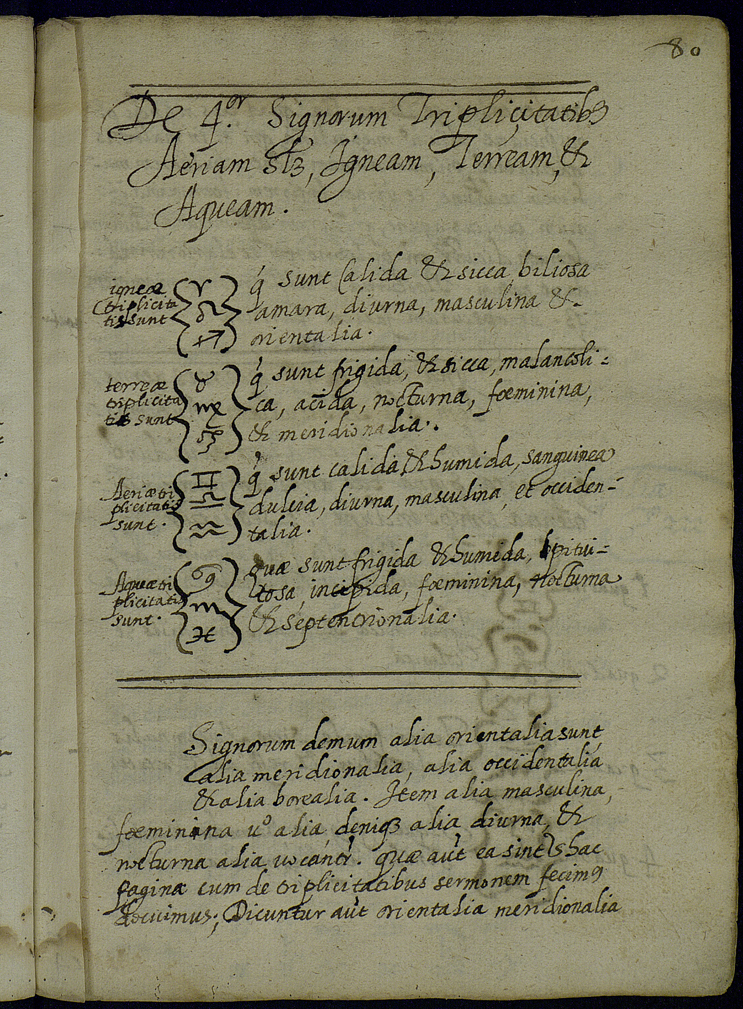 80
De 4.or Signorum Triplicitatibꝰ
Aeriam slꝫ, Igneam, Terream, &
Aqueam.
igneæ
triplicita
tis sunt
♈
♌
♐
q̓ sunt Calida & sicca biliosa
amara, diurna, masculina &
orientalia.
terreæ
triplicita
tis sunt
♉
♍
♑
q̓ sunt frigida, & sicca, malancoli=
ca, acida, nocturna, fœminina,
& meridionalia.
Aeriæ tri
plicitatis
sunt.
♊
♎
♒
q̓ sunt calida & humida, sanguinea
dulcia, diurna, masculina, et occiden=
talia.
Aquæ tri
plicitatis
sunt.
♋
♏
♓
quæ sunt frigida & humida, pitui=
tosa incipida, fœminina, nocturna
& septentrionalia.
Signorum demum alia orientalia sunt
alia meridionalia, alia occidentalia
& alia borealia. Item alia masculina,
fœminina u.º alia, deniqꝫ alia diurna, &
nocturna alia uocant.r quæ aūt ea sint hac
pagina cum de triplicitatibus sermonem fecimꝰ
docuimus; Dicuntur aūt orientalia meridionalia